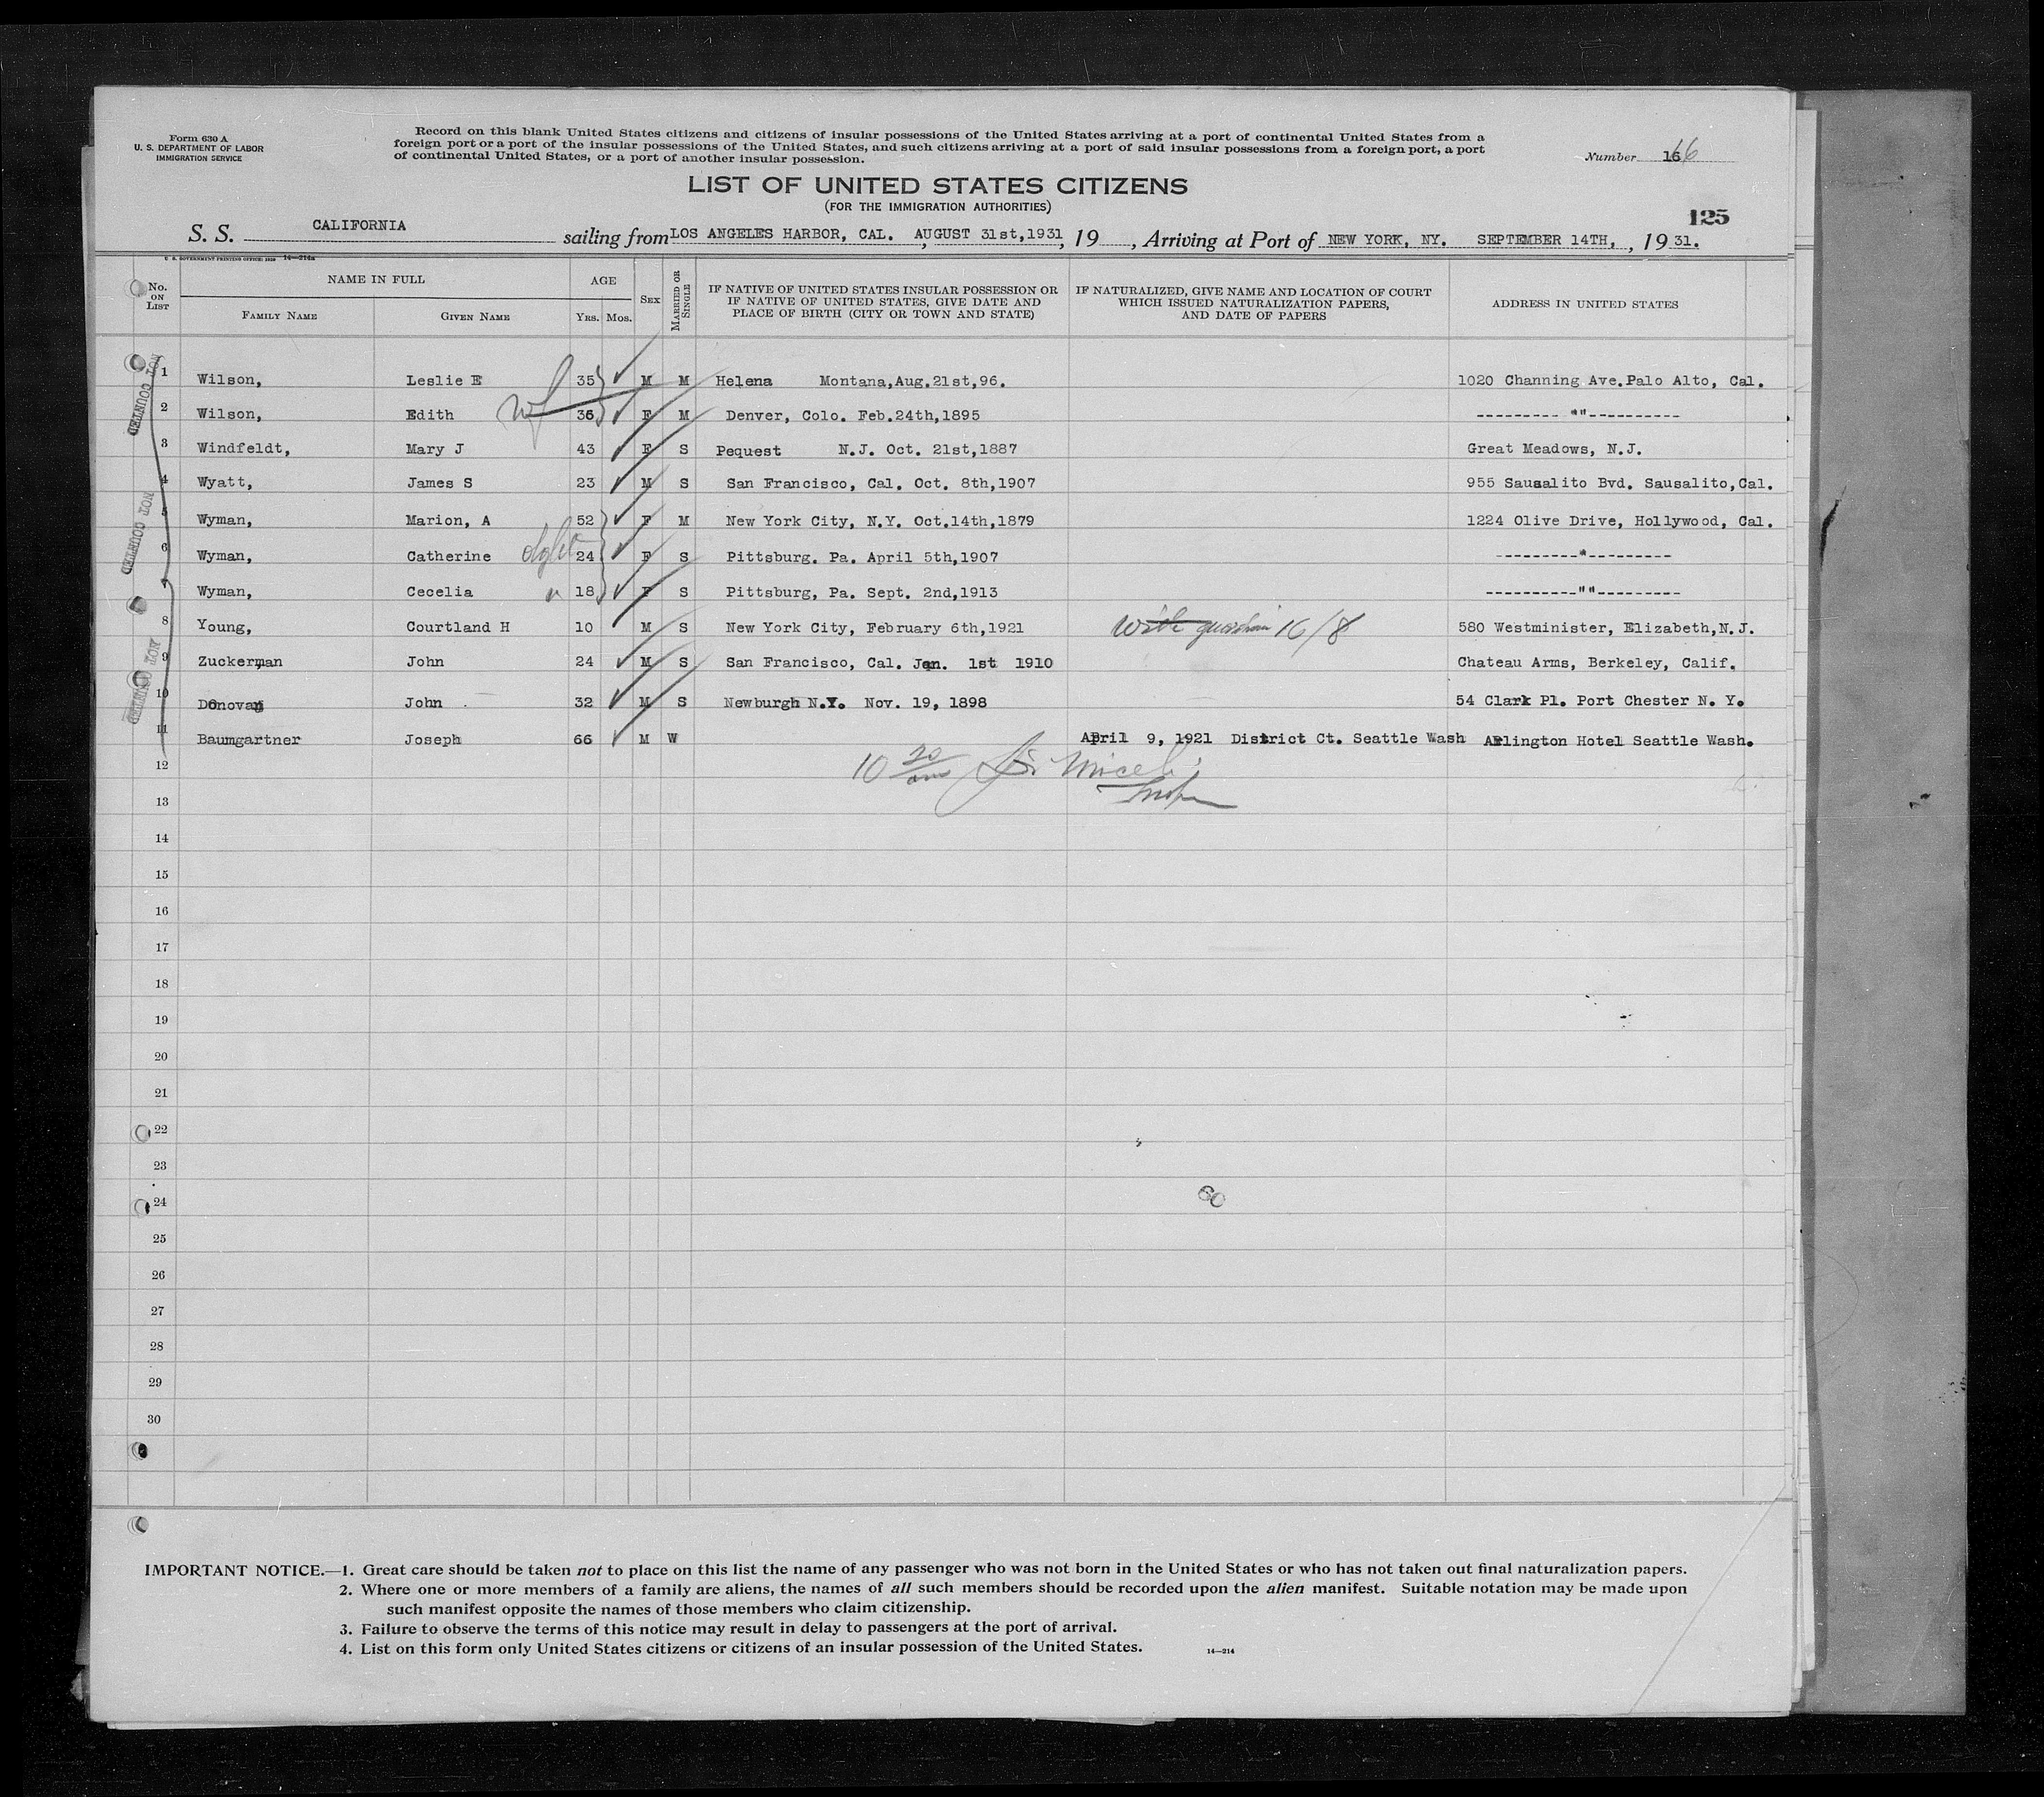 Form 630 A
U. S. DEPARTMENT OF LABOR
IMMIGRATION SERVICE
Record on this blank United States citizens and citizens of insular possessions of the United States arriving at a port of continental United States from a
foreign port or a port of the insular possessions of the United States, and such citizens arriving at a port of said insular possessions from a foreign port, a port
of continental United States, or a port of another insular possession.
Number 16 16
LIST OF UNITED STATES CITIZENS
(FOR THE IMMIGRATION AUTHORITIES)
125
S. S. CALIFORNIA sailing from LOS ANGELES HARBOR, CAL. AUGUST 31st,1931, 19 , Arriving at Port of NEW YORK, NY. SEPTEMBER 14TH, , 19 31.
U. S. GOVERNMENT PRINTING OFFICE: 1929 14—214a
No. ON LIST
NAME IN FULL
FAMILY NAME
GIVEN NAME
AGE
YRS. MOS.
SEX
MARRIED OR SINGLE
IF NATIVE OF UNITED STATES INSULAR POSSESSION OR
IF NATIVE OF UNITED STATES, GIVE DATE AND
PLACE OF BIRTH (CITY OR TOWN AND STATE)
IF NATURALIZED, GIVE NAME AND LOCATION OF COURT
WHICH ISSUED NATURALIZATION PAPERS,
AND DATE OF PAPERS
ADDRESS IN UNITED STATES
NOT COUNTED
NOT COUNTED
NOT COUNTED
1 Wilson, Leslie E 35 M M Helena Montana,Aug.21st,96. 1020 Channing Ave.Palo Alto, Cal.
2 Wilson, Edith wf 36 F M Denver, Colo. Feb.24th,1895 --------- "" -----------
3 Windfeldt, Mary J 43 F S Pequest N.J. Oct. 21st,1887 Great Meadows, N.J.
4 Wyatt, James S 23 M S San Francisco, Cal. Oct. 8th,1907 955 Sausalito Bvd. Sausalito,Cal.
5 Wyman, Marion, A 52 F M New York City, N.Y. Oct.14th,1879 1224 Olive Drive, Hollywood, Cal.
6 Wyman, Catherine 24 F S Pittsburg. Pa. April 5th,1907 ---------"----------
7 Wyman, Cecelia " 18 F S Pittsburg, Pa. Sept. 2nd,1913 ----------""----------
8 Young, Courtland H 10 M S New York City, February 6th,1921 With 16/8 580 Westminister, Elizabeth,N.J.
9 Zuckerman John 24 M S San Francisco, Cal. Jan. 1st 1910 Chateau Arms, Berkeley, Calif.
10 Donovan John 32 M S Newburgh N.Y. Nov. 19, 1898 54 Clark Pl. Port Chester N. Y.
11 Baumgartner Joseph 66 M W April 9, 1921 District Ct. Seattle Wash Arlington Hotel Seattle Wash.
12 10 20 am
13
14
15
16
17
18
19
20
21
22
23
24 60
25
26
27
28
29
30
IMPORTANT NOTICE.—1. Great care should be taken not to place on this list the name of any passenger who was not born in the United States or who has not taken out final naturalization papers.
2. Where one or more members of a family are aliens, the names of all such members should be recorded upon the alien manifest. Suitable notation may be made upon
such manifest opposite the names of those members who claim citizenship.
3. Failure to observe the terms of this notice may result in delay to passengers at the port of arrival.
4. List on this form only United States citizens or citizens of an insular possession of the United States. 14—214